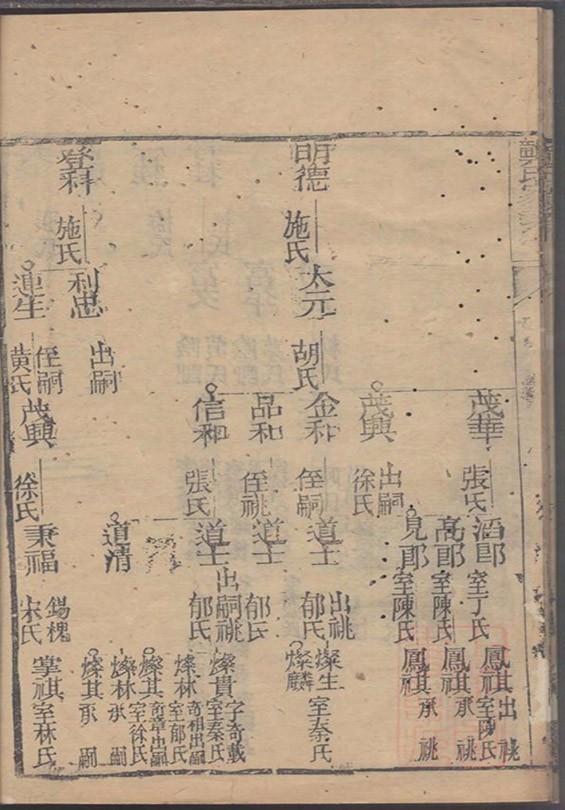 明德
登科
施氏
施氏
太元
利忠
連生
胡氏
出嗣
侄嗣
黄氏
茂華
茂興
金和
品和
信和
茂興
張氏
出嗣
徐氏
侄嗣
侄祧
張氏
徐氏
酒郎
高郎
見郎
道士
道士
道士
道清
秉福
室丁氏
室陳氏
室陳氏
出祧
郁氏
郁氏
出嗣祧
郁氏
錫槐
宋氏
鳳祖
出祧
室陳氏
鳳其
承祧
鳳其
承祧
燦生
室秦氏
燦麟
燦貴
字奇載
室秦氏
燦林
奇祖出嗣
室郁氏
燦其
奇章出嗣
室徐氏
燦林
承嗣
燦其
承嗣
掌祺
室林氏